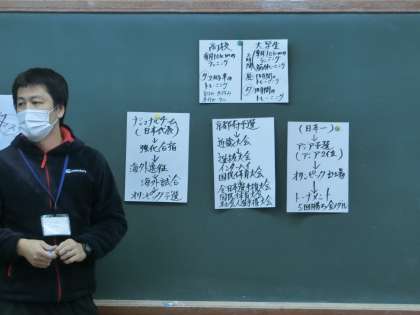 高校
毎日10kmの
ランニング
夕 2時間半の
トレーニング
大学生
毎日10kmの
ランニング
昼 1時間の
トレーニング
夕 2時間の
トレーニング
ナショナルチーム
(日本代表)
強化合宿
↓
海外遠征
海外試合
↓
オリンピック予選
京都府予選
↓
近畿大会
↓
選抜大会
インターハイ
国民体育大会
全日本選手権大会
国民体育大会
社会人選手権大会
(日本一)
↓
アジア予選
(アジア2位)
↓
オリンピック出場
↓
トーナメント
5回勝ち金メダル